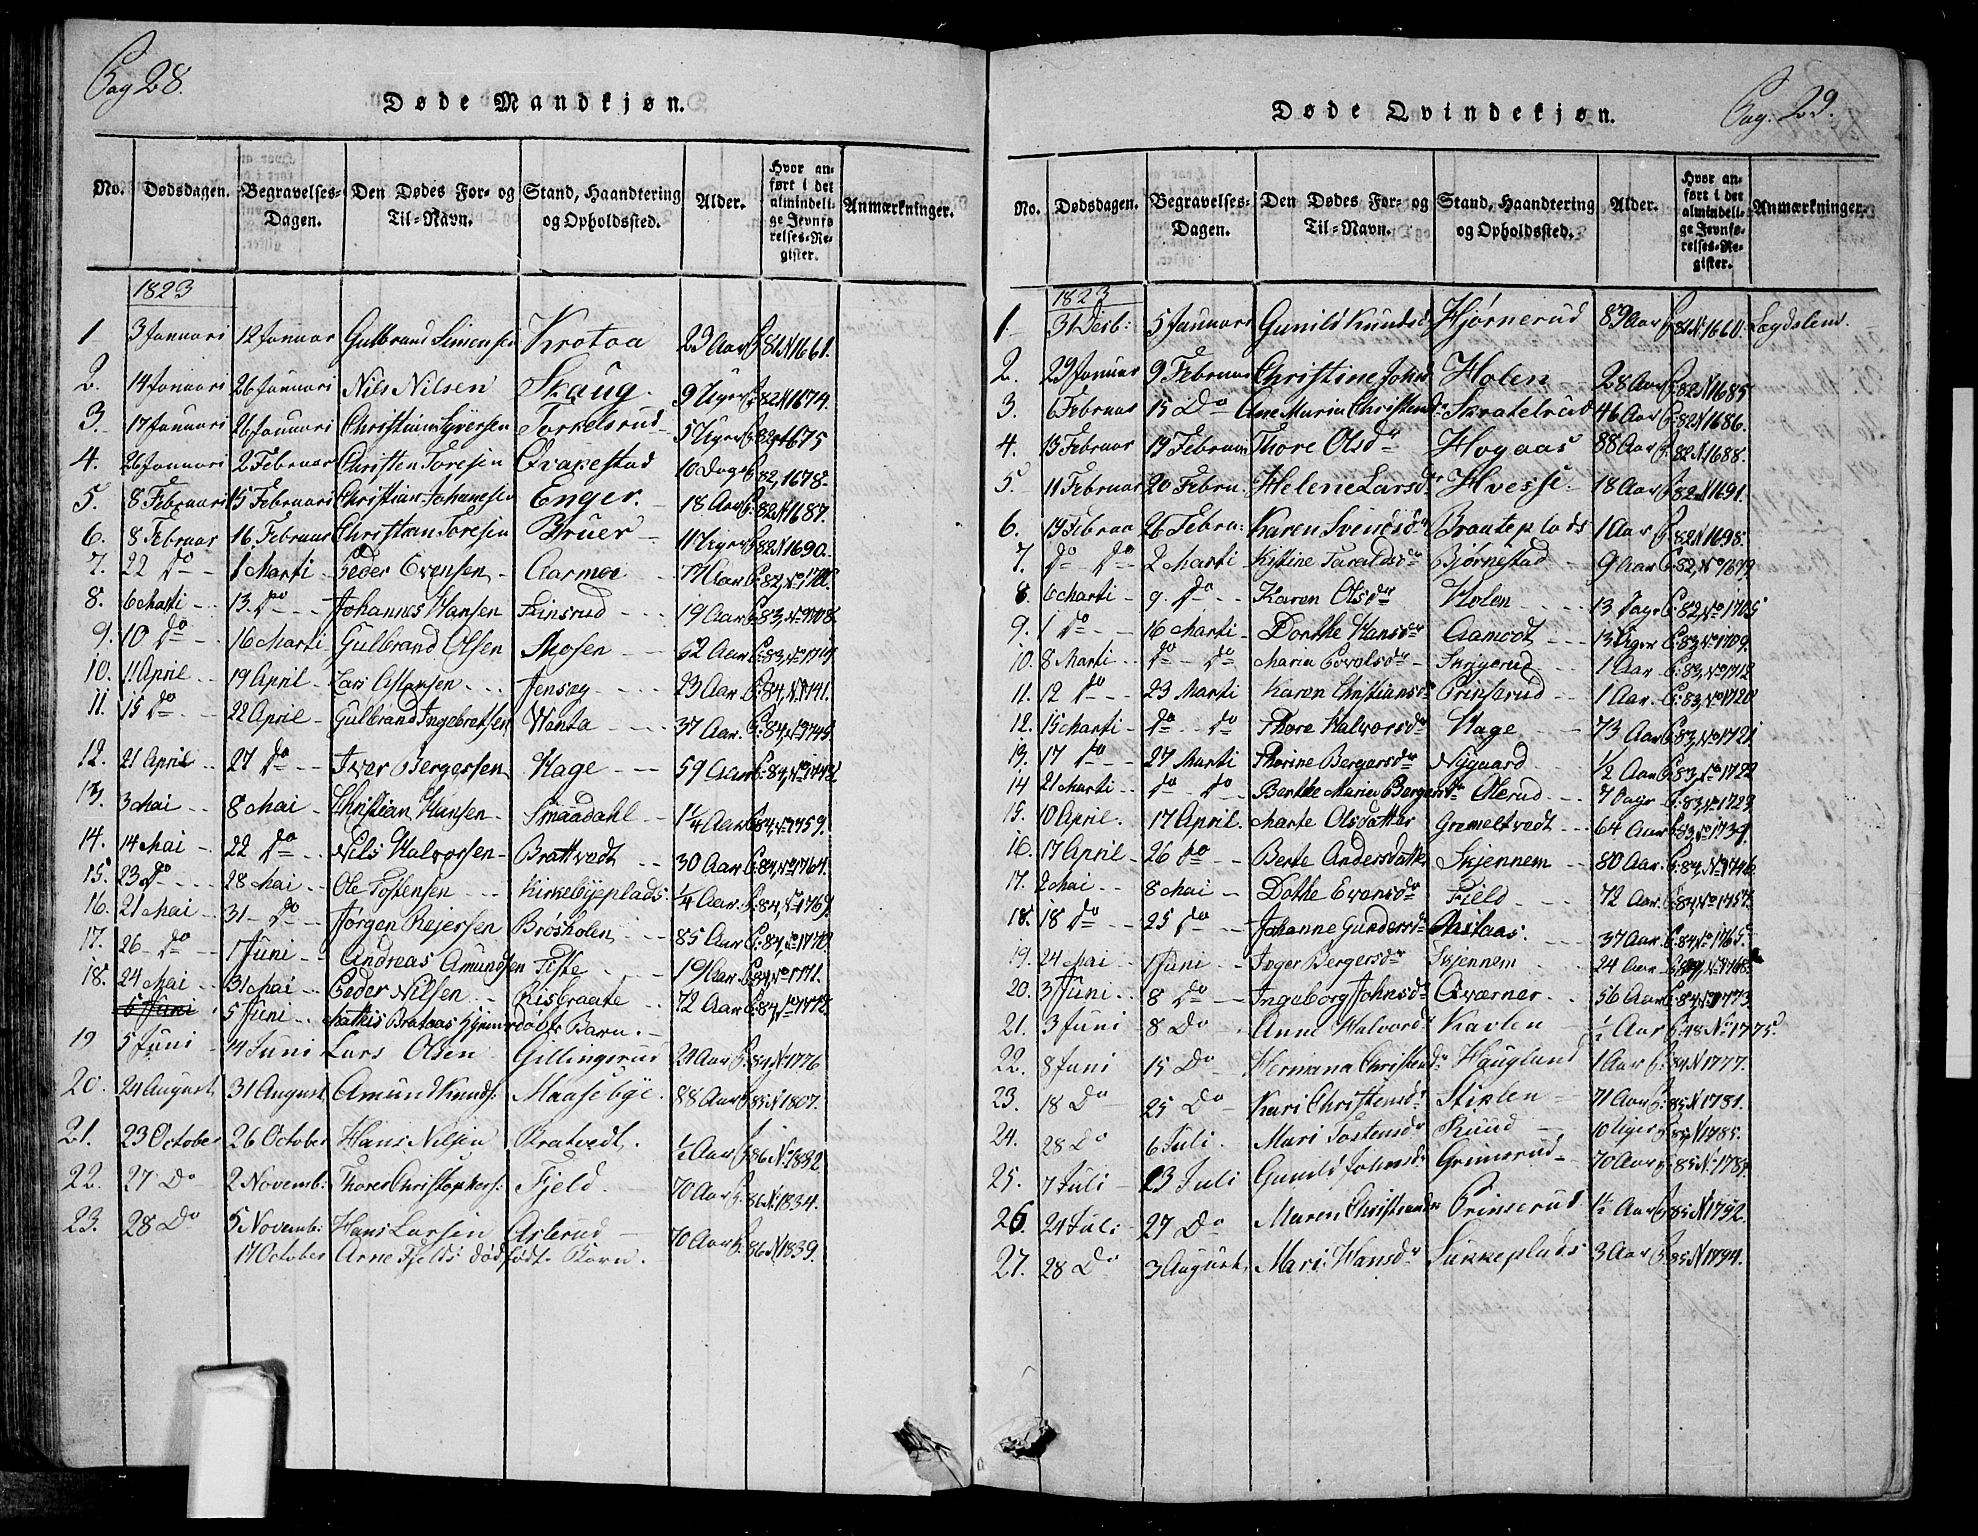 Pag 28.
Døde Mandkjøn.
No. Dødsdagen. Begravelses-Dagen. Den Dødes For- og Til-Navn. Stand, Haandtering og Opholdssted. Alder. Hvor anført i det almindelige Jevnførelses-Register. Anmærkninger.
1823
1 3 Januari 12 Januar Gulbrand Simensen Krotoa 23 Aar P: 81 N 1661.
2. 14 Januari 26 Januari Nils Nilsen Skaug. 9 Uger P: 82 N 1674.
3. 17 Januari 26 Januari Christian Syversen Torkelsrud 5 Uger P: 82 N 1675
4. 26 Januari 2 Februar Christen Toresen Qvapestad 10 Dage P: 82, 1678
5. 8 Februari 15 Februari Christian Johanesen Enger. 18 Aar P: 82 N 1687.
6. 8 Februar 16 Februar Christian Toresen Bruer 11 Uger P: 82 N 1690.
7. 22 Do 1 Marti Peder Evensen Aarmoe 71 Aar P: 82, No
8. 6 Marti 13. Do Johannes Hansen Finsrud 19 Aar P: 83, No 1708.
9. 10 Do 16 Marti Gulbrand Olsen Mosen 62 Aar P: 83, No
10. 11 April 19 April Lars Jensøy 23 Aar P: 84, N. 1741.
11. 15 Do 22 April Gulbrand Ingebretsen Wanta 37 Aar. P: 84, No 1745
12. 21 April 27 Do Iver Bergersen Hage 59 Aar P: 84, No 1748
13. 3 Mai 8 Mai Christian Hansen Smaadahl 1 1/4 Aar P: 84, No 1759.
14. 14 Mai 22 Do Nils Halvorsen Brattvedt 30 Aar P: 84, No 1764.
15. 23 Do 28 Mai Ole Tostensen Kirkebyeplads 1/4 Aar. P: 84, No 1769.
16. 21 Mai 31 Do Jørgen Rejersen Brøsholen 85 Aar P: 84, No 1770.
17. 26 Do 1 Juni Andreas Amundsen 19 Aar P: 84, No 1771.
18. 24 Mai 31 Mai Peder Nilsen Risbraate 72 Aar P: 84, No 1772.
5 Juni 5 Juni Mathis Brataas Hjemmedøbte Barn.
19 5 Juni 14 Juni Lars Olsen Gillingsrud 23 Aar P: 84 N 1776
20. 24 August 31 August Amund Knuds: Maasebye. 88 Aar P: 85 N 1807.
21. 23 October 26 October Hans Nilsen Bratvedt. 1/2 Aar P: 86 N. 1832
22. 27 Do 2 Novemb: Thorer Christophers: Fjeld. 70 Aar P: 86 N. 1834.
23. 28 Do 5 Novemb: Hans Larsen Aslerud 70 Aar P: 86 N 1839.
17 October Arne Fjelds dødfødte Barn.
Pag. 29.
Døde Qvindekjøn.
No. Dødsdagen. Begravelses-Dagen. Den Dødes For- og Til-Navn. Stand, Haandtering og Opholdssted. Alder. Hvor anført i det almindelige Jevnførelses-Register. Anmærkninger.
1823
1 31 Desb: 5 Januari Gunild Knudsdr Hjørnerud 89 Aar P: 81 N. 1660. Lægdslem.
2. 29 Januar 9 Februar Christine Johnsdr Holen 28 Aar P: 82 N 1685
3. 6 Februar 15 Do Ane Maria Christendr Skratelrud 46 Aar P: 82 N 1686.
4. 13 Februar 19 Februar Thore Olsdr Hogaas 88 Aar P: 82 N 1688.
5. 11 Februar 20 Febru. Helene Larsdr Hvesse 18 Aar P: 82 N 1691.
6. 19 Februa 26 Febru: Karen Svendsdr Braateplads 1 Aar P: 82 N 1698.
7. Do Do 2 Marti Kistine Taraldsdr Bjørnestad 9 Aar. P: 82, No 1699
8. 6 Marti 9. Do Karen Olsdr Holen 13. Dage P: 82, No 1705
9. 1 Do 16 Marti Dorthe Hansdr Aamodt 13 Uger P: 83, No 1709.
10. 8 Marti Do Do Maria Povelsdr 1 Aar P: 83, No 1712
11. 12 Do 23 Marti Karen Christiansdr Prinserud 1 Aar. P: 83, No 1720
12. 15 Marti Do Do Thore Halvorsdr Hage 73 Aar P: 83, No 1721
13. 17 Do 27 Marti Thorine Bergersdr Nygaard 1/2 Aar P: 83, No 1722
14 21 Marti Do Do Berthe Maria Bergersdr Olerud 7 Dage P: 83, No 1723
15. 10 April. 17 April. Marte Olsdatter Gremeltvedt 64 Aar P: 83, No 1734.
16. 17 April 26 Do Berte Andersdatter Skjennem 80 Aar. P: 84, No 1746
17. 2 Mai 8 Mai Dothe Evensdr Field 72 Aar. P: 84, No 1757.
18. 18 Do 25 Do Johanne Gundersdr 37 Aar P: 84 No 1765
19. 24 Mai 1 Juni Inger Bergersdr Skjennem 24 Aar P: 84, No 1768
20. 3 Juni 8 Do Ingeborg Johnsdr Qværner 56 Aar P: 84, No 1773
21. 3 Juni 8 Do Anne Halvordr Kavlen 1/2 Aar P: 48 No 1775.
22. 8 Juni 15 Do Hermana Christendr Hauglund 1 Aar P: 84 N 1777.
23. 18 Do 25 Do Kari Christensdr Stiplen 71 Aar P: 85 N 1781.
24. 28 Do 6 Juli. Mari Tostensdr Ruud 10 Uger P: 85 N 1785.
25. 7 Juli 13 Juli Gunild Johnsdr Grinerud 70 Aar P: 85 N 1787
26. 24 Juli 27 Do Maren Christiansdr Prinserud 1 1/2 Aar P: 85 N 1792.
27. 28 Do 3 August. Mari Hansdr Sukkeplads 3 Aar P: 85 N 1794.